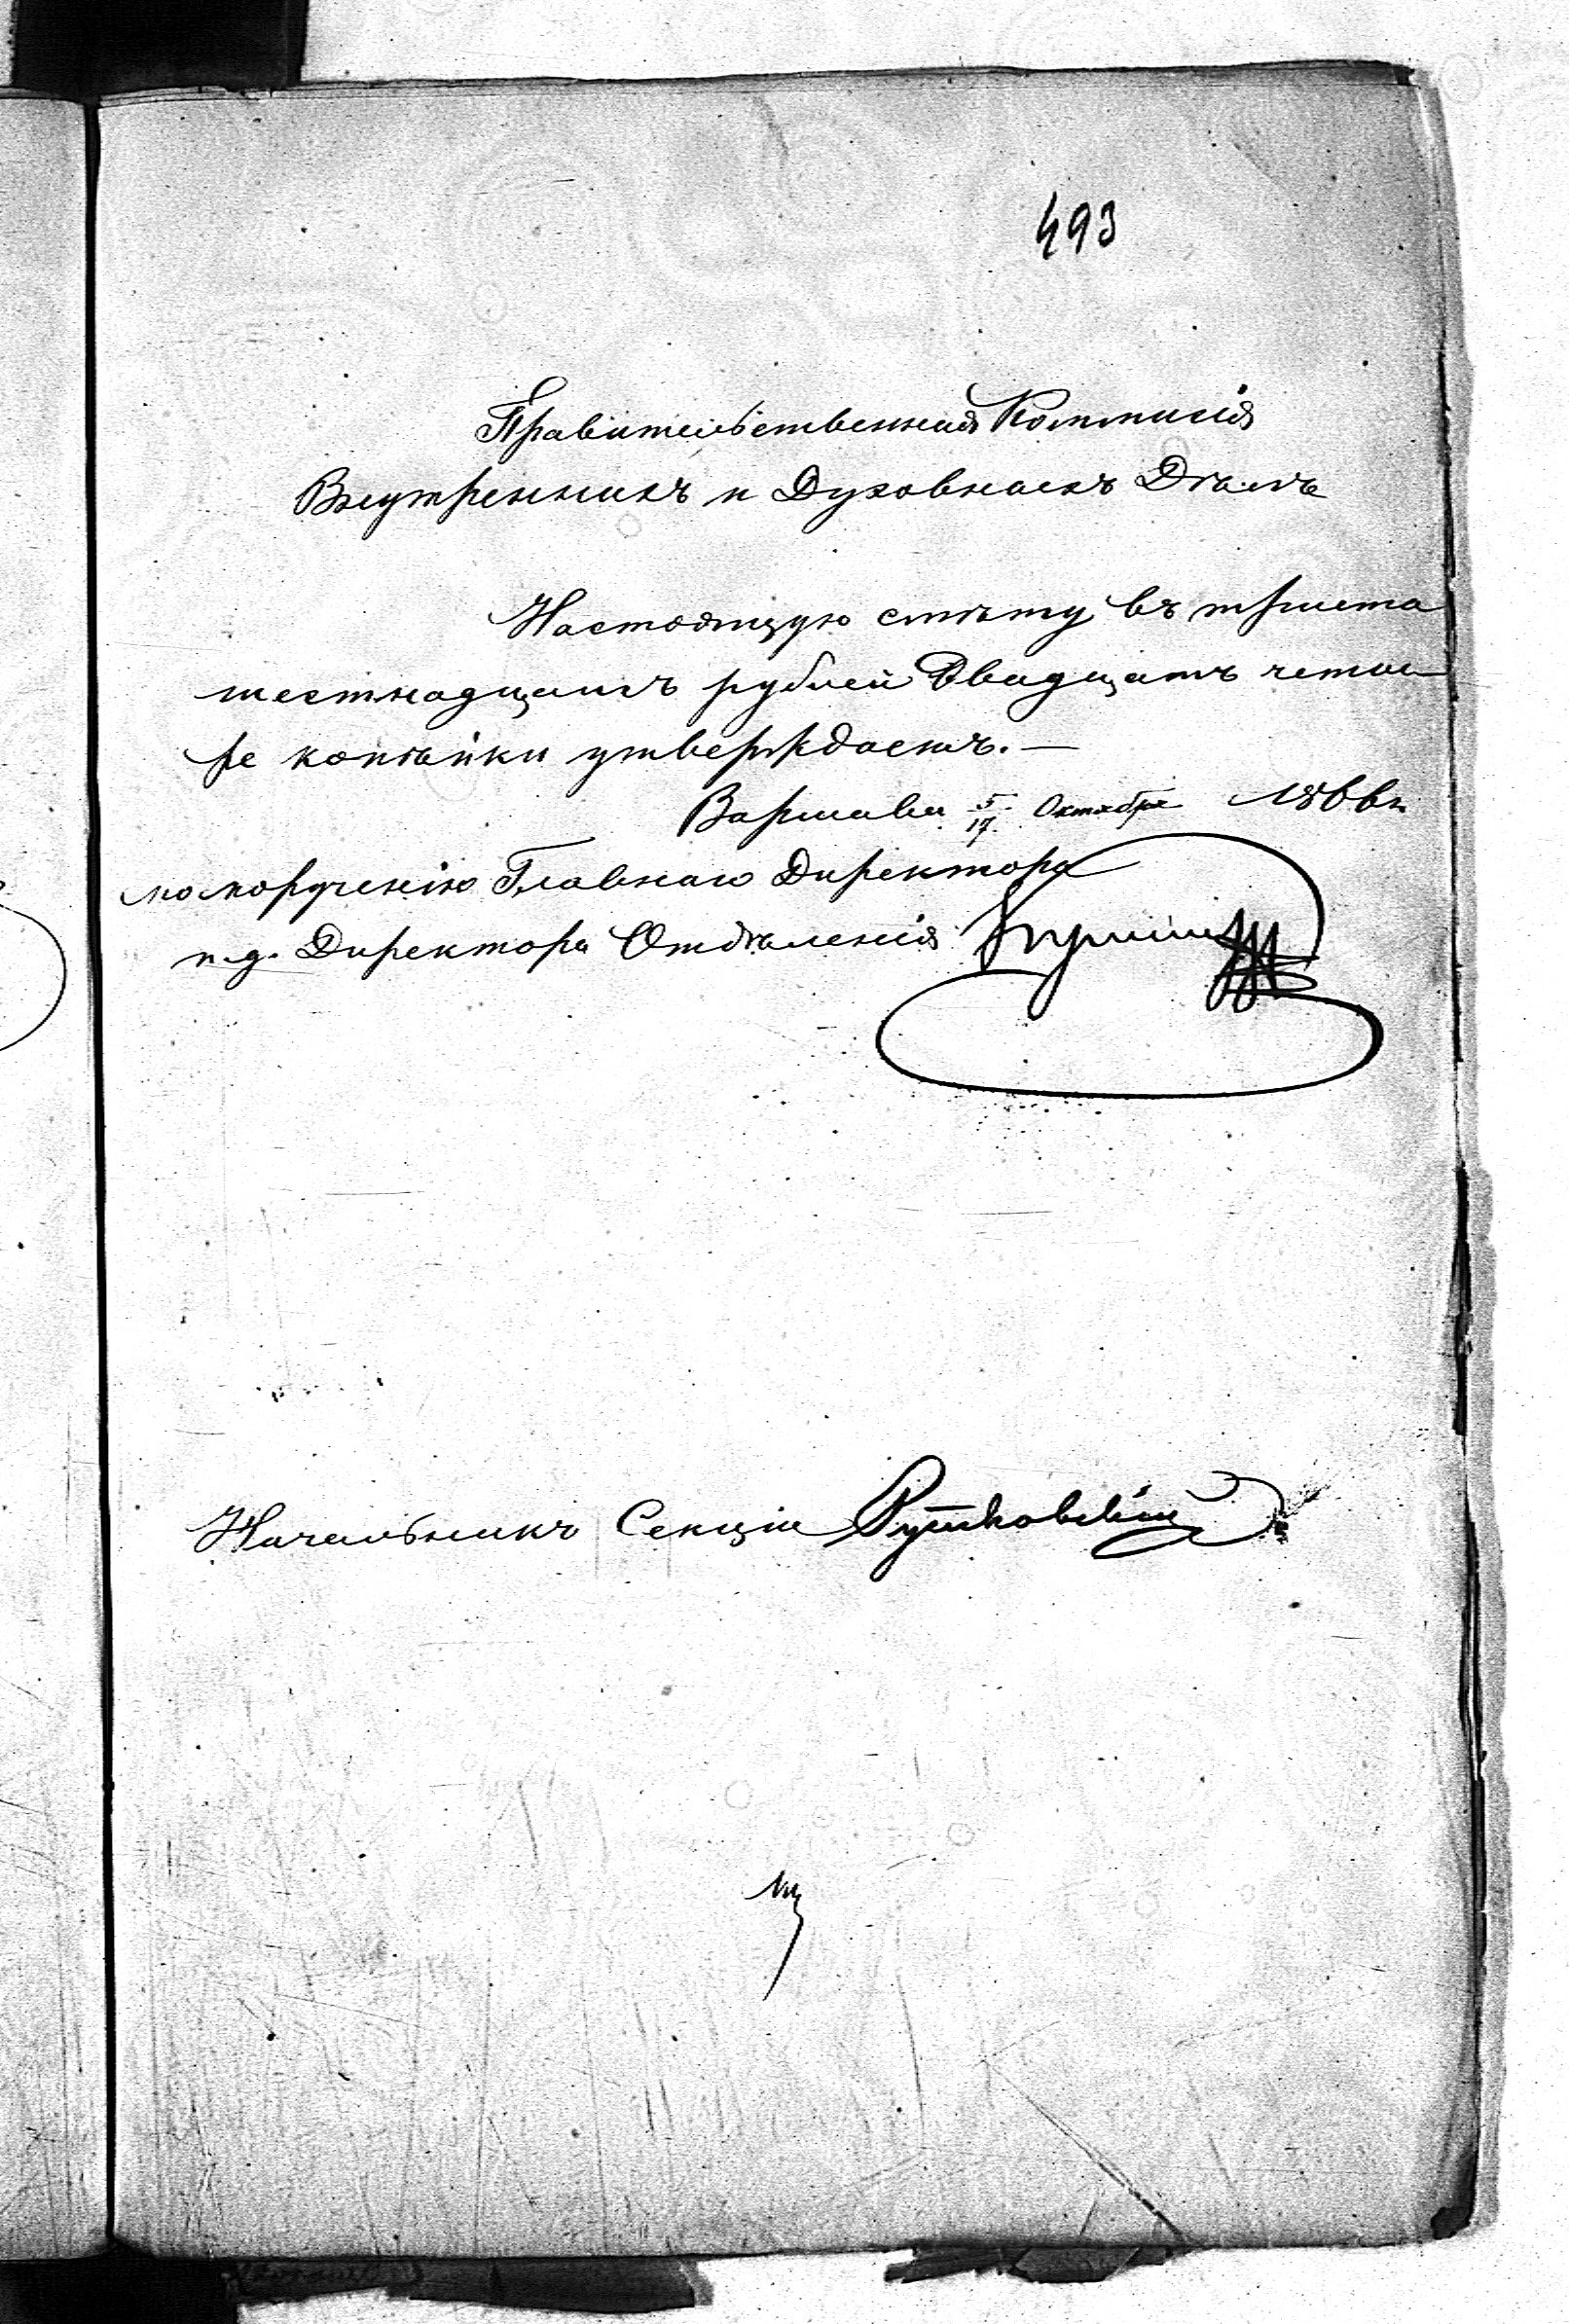 493
Правительственная Коммисія
Внутренникъ и Духовныхъ Дѣлъ
Настоящую смѣту въ триста
шестнадцать рублей двадцать четы-
ре копѣйки утверждаетъ.—
Варшава 5/17 Октября 1866 г.
по порученію Главнаго Директора
и.д. Директора Отдѣленія
Начальникъ Секціи Рутковскій